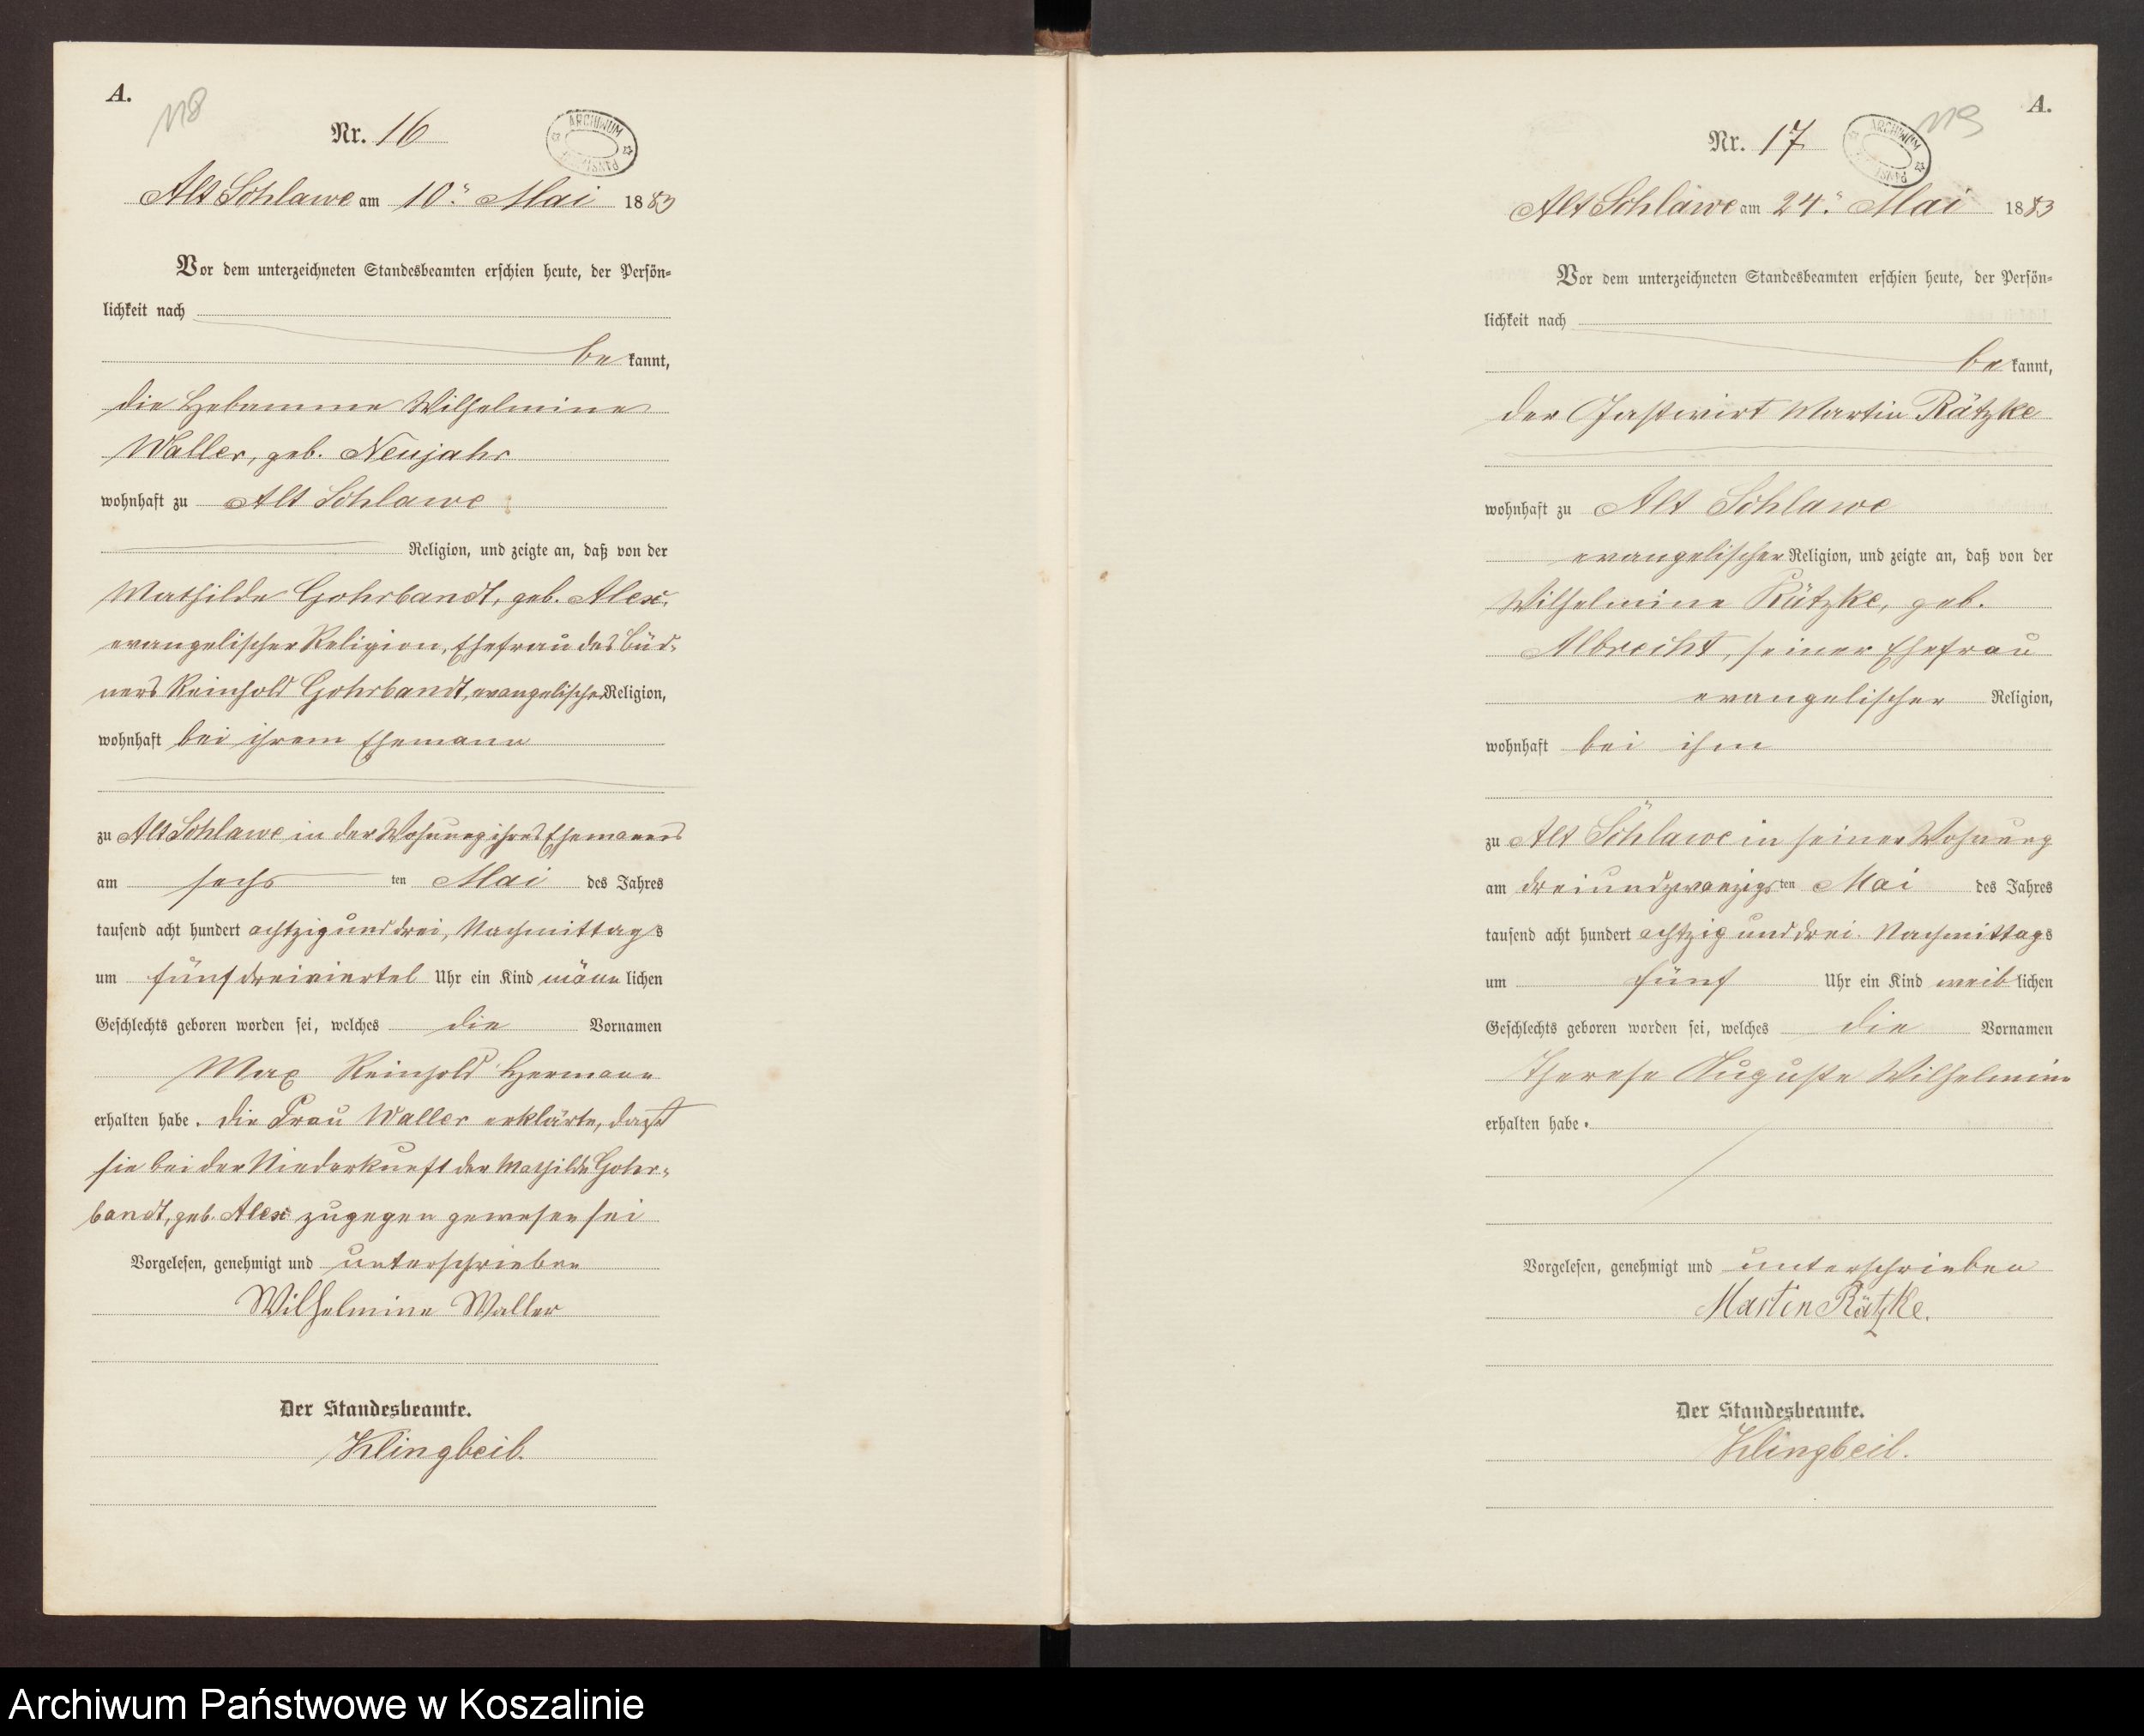 A.
118
Nr. 16
ARCHIWUM PAŃSTW
Alt Schlawe am 10. Mai 1883
Vor dem unterzeichneten Standesbeamten erschien heute, der Persön-
lichkeit nach
be kannt,
die Hebamme Wilhelmine
Waller, geb. Neujahr
wohnhaft zu Alt Schlawe
Religion, und zeigte an, daß von der
Mathilde Gohrbandt, geb. Alex,
evangelischer Religion, Ehefrau des Büd-
ners Reinhold Gohrbandt, evangelischer Religion,
wohnhaft bei ihrem Ehemann
zu Alt Schlawe in der Wohnung ihres Ehemannes
am sechs ten Mai des Jahres
tausend acht hundert achtzig und drei, Nachmittags
um fünf dreiviertel Uhr ein Kind männ lichen
Geschlechts geboren worden sei, welches die Vornamen
Max Reinhold Hermann
erhalten habe. Die Frau Waller erklärte, dass
sie bei der Niederkunft der Mathilde Gohr-
bandt, geb. Alex zugegen gewesen sei
Vorgelesen, genehmigt und unterschrieben
Wilhelmine Waller
Der Standesbeamte.
Klingbeil.
A.
119
Nr. 17
ARCHIWUM PAŃST
Alt Schlawe am 24. Mai 1883
Vor dem unterzeichneten Standesbeamten erschien heute, der Persön-
lichkeit nach
be kannt,
der Gastwirt Martin Rätzke
wohnhaft zu Alt Schlawe
evangelischer Religion, und zeigte an, daß von der
Wilhelmine Rätzke, geb.
Albrecht, seiner Ehefrau
evangelischer Religion,
wohnhaft bei ihm
zu Alt Schlawe in seiner Wohnung
am dreiundzwanzigs ten Mai des Jahres
tausend acht hundert achtzig und drei. Nachmittags
um fünf Uhr ein Kind weib lichen
Geschlechts geboren worden sei, welches die Vornamen
Therese Auguste Wilhelmine
erhalten habe.
Vorgelesen, genehmigt und unterschrieben
Martin Rätzke.
Der Standesbeamte.
Klingbeil.
Archiwum Państwowe w Koszalinie